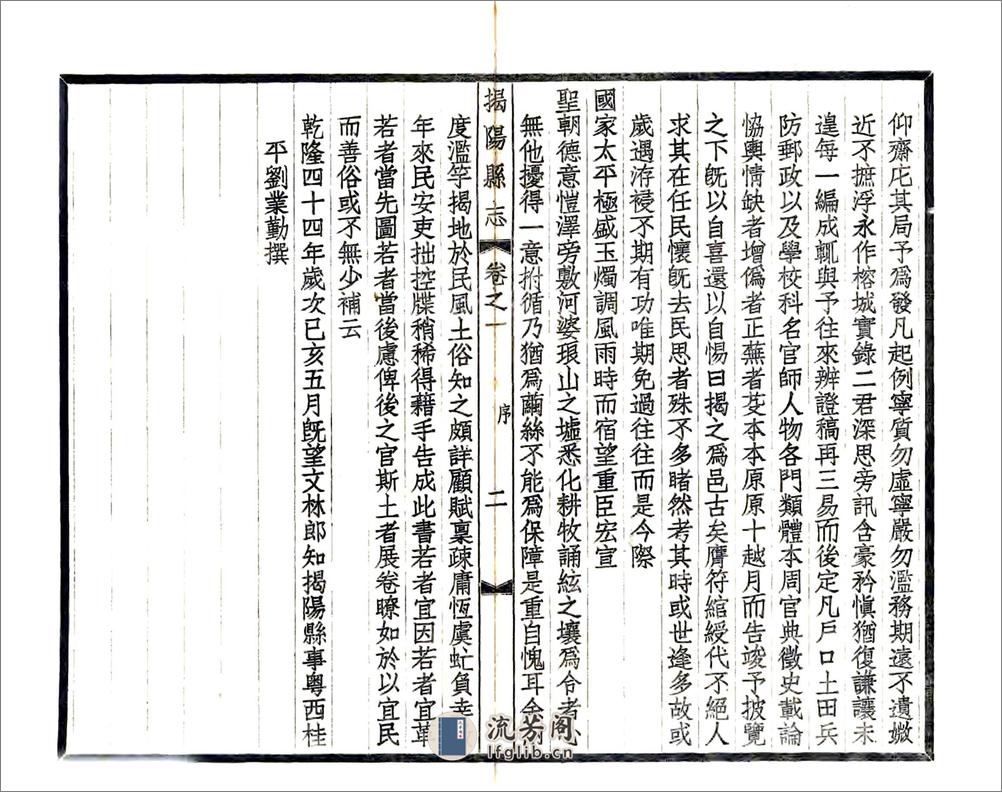 仰齋庀其局予爲發凡起例寧質勿虛寧嚴勿濫務期遠不遺媺
近不摭浮永作榕城實錄二君深思旁訊含豪矜愼猶復謙讓未
遑每一編成輒與予往來辨證稿再三易而後定凡戶口土田兵
防郵政以及學校科名官師人物各門類體本周官典徵史載論
協輿情缺者增僞者正蕪者芟本本原原十越月而告竣予披覽
之下旣以自喜還以自惕曰揭之爲邑古矣膺符綰綬代不絕人
求其在任民懷旣去民思者殊不多睹然考其時或世逢多故或
歲遇洊祲不期有功唯期免過往往而是今際
國家太平極盛玉燭調風雨時而宿望重臣宏宣
聖朝德意愷澤旁敷河婆琅山之墟悉化耕牧誦絃之壤爲令者心
無他擾得一意拊循乃猶爲繭絲不能爲保障是重自愧耳余
揭陽縣志 卷之一 序 二
度濫竽揭地於民風土俗知之頗詳顧賦稟疎庸恆虞虻負幸
年來民安吏拙控牒稍稀得藉手告成此書若者宜因若者宜革
若者當先圖若者當後慮俾後之官斯土者展卷瞭如於以宜民
而善俗或不無少補云
乾隆四十四年歲次己亥五月旣望文林郎知揭陽縣事粤西桂
平劉業勤撰
流芳阁
lfglib.cn